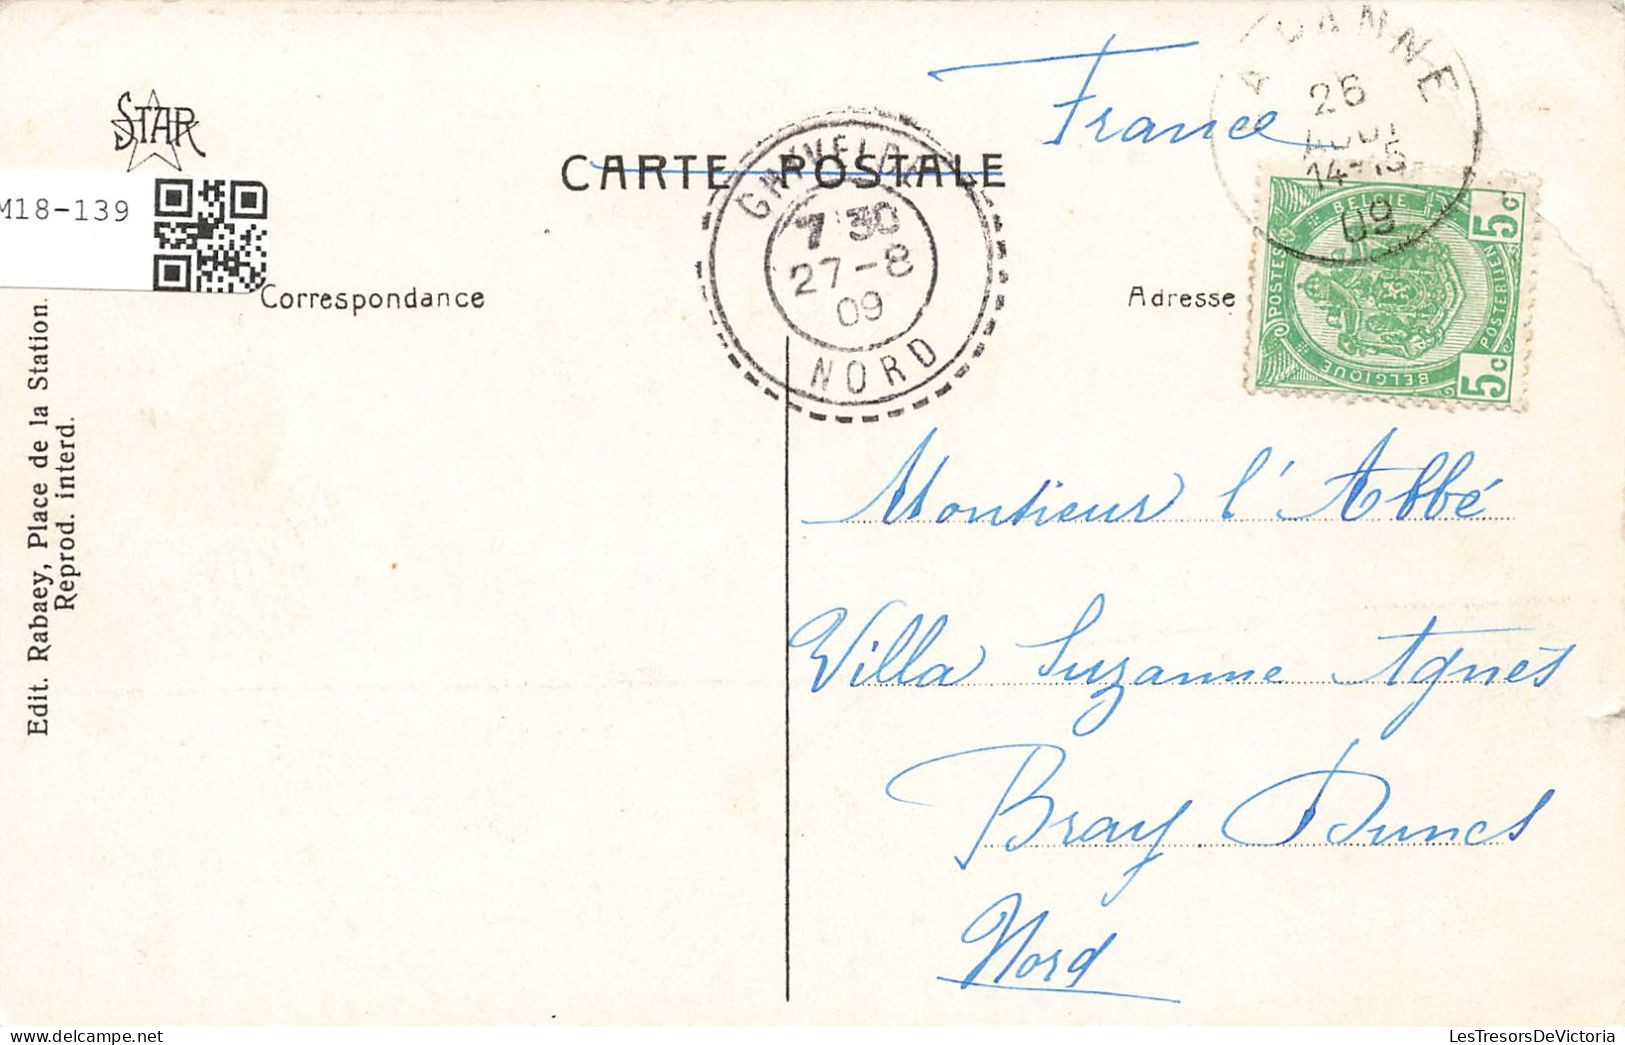 France
STAR
CARTE POSTALE
GHYVELDE
7 30
27-8
09
NORD
26
AOUT
14-15
09
M18-139
Correspondance
Adresse
POSTES
BELGIË
5c
POSTERIJEN
BELGIQUE
5c
Edit. Rabaey, Place de la Station.
Reprod. interd.
Monsieur l'Abbé
Villa Suzanne Agnès
Bray Dunes
Nord
LesTresorsDeVictoria